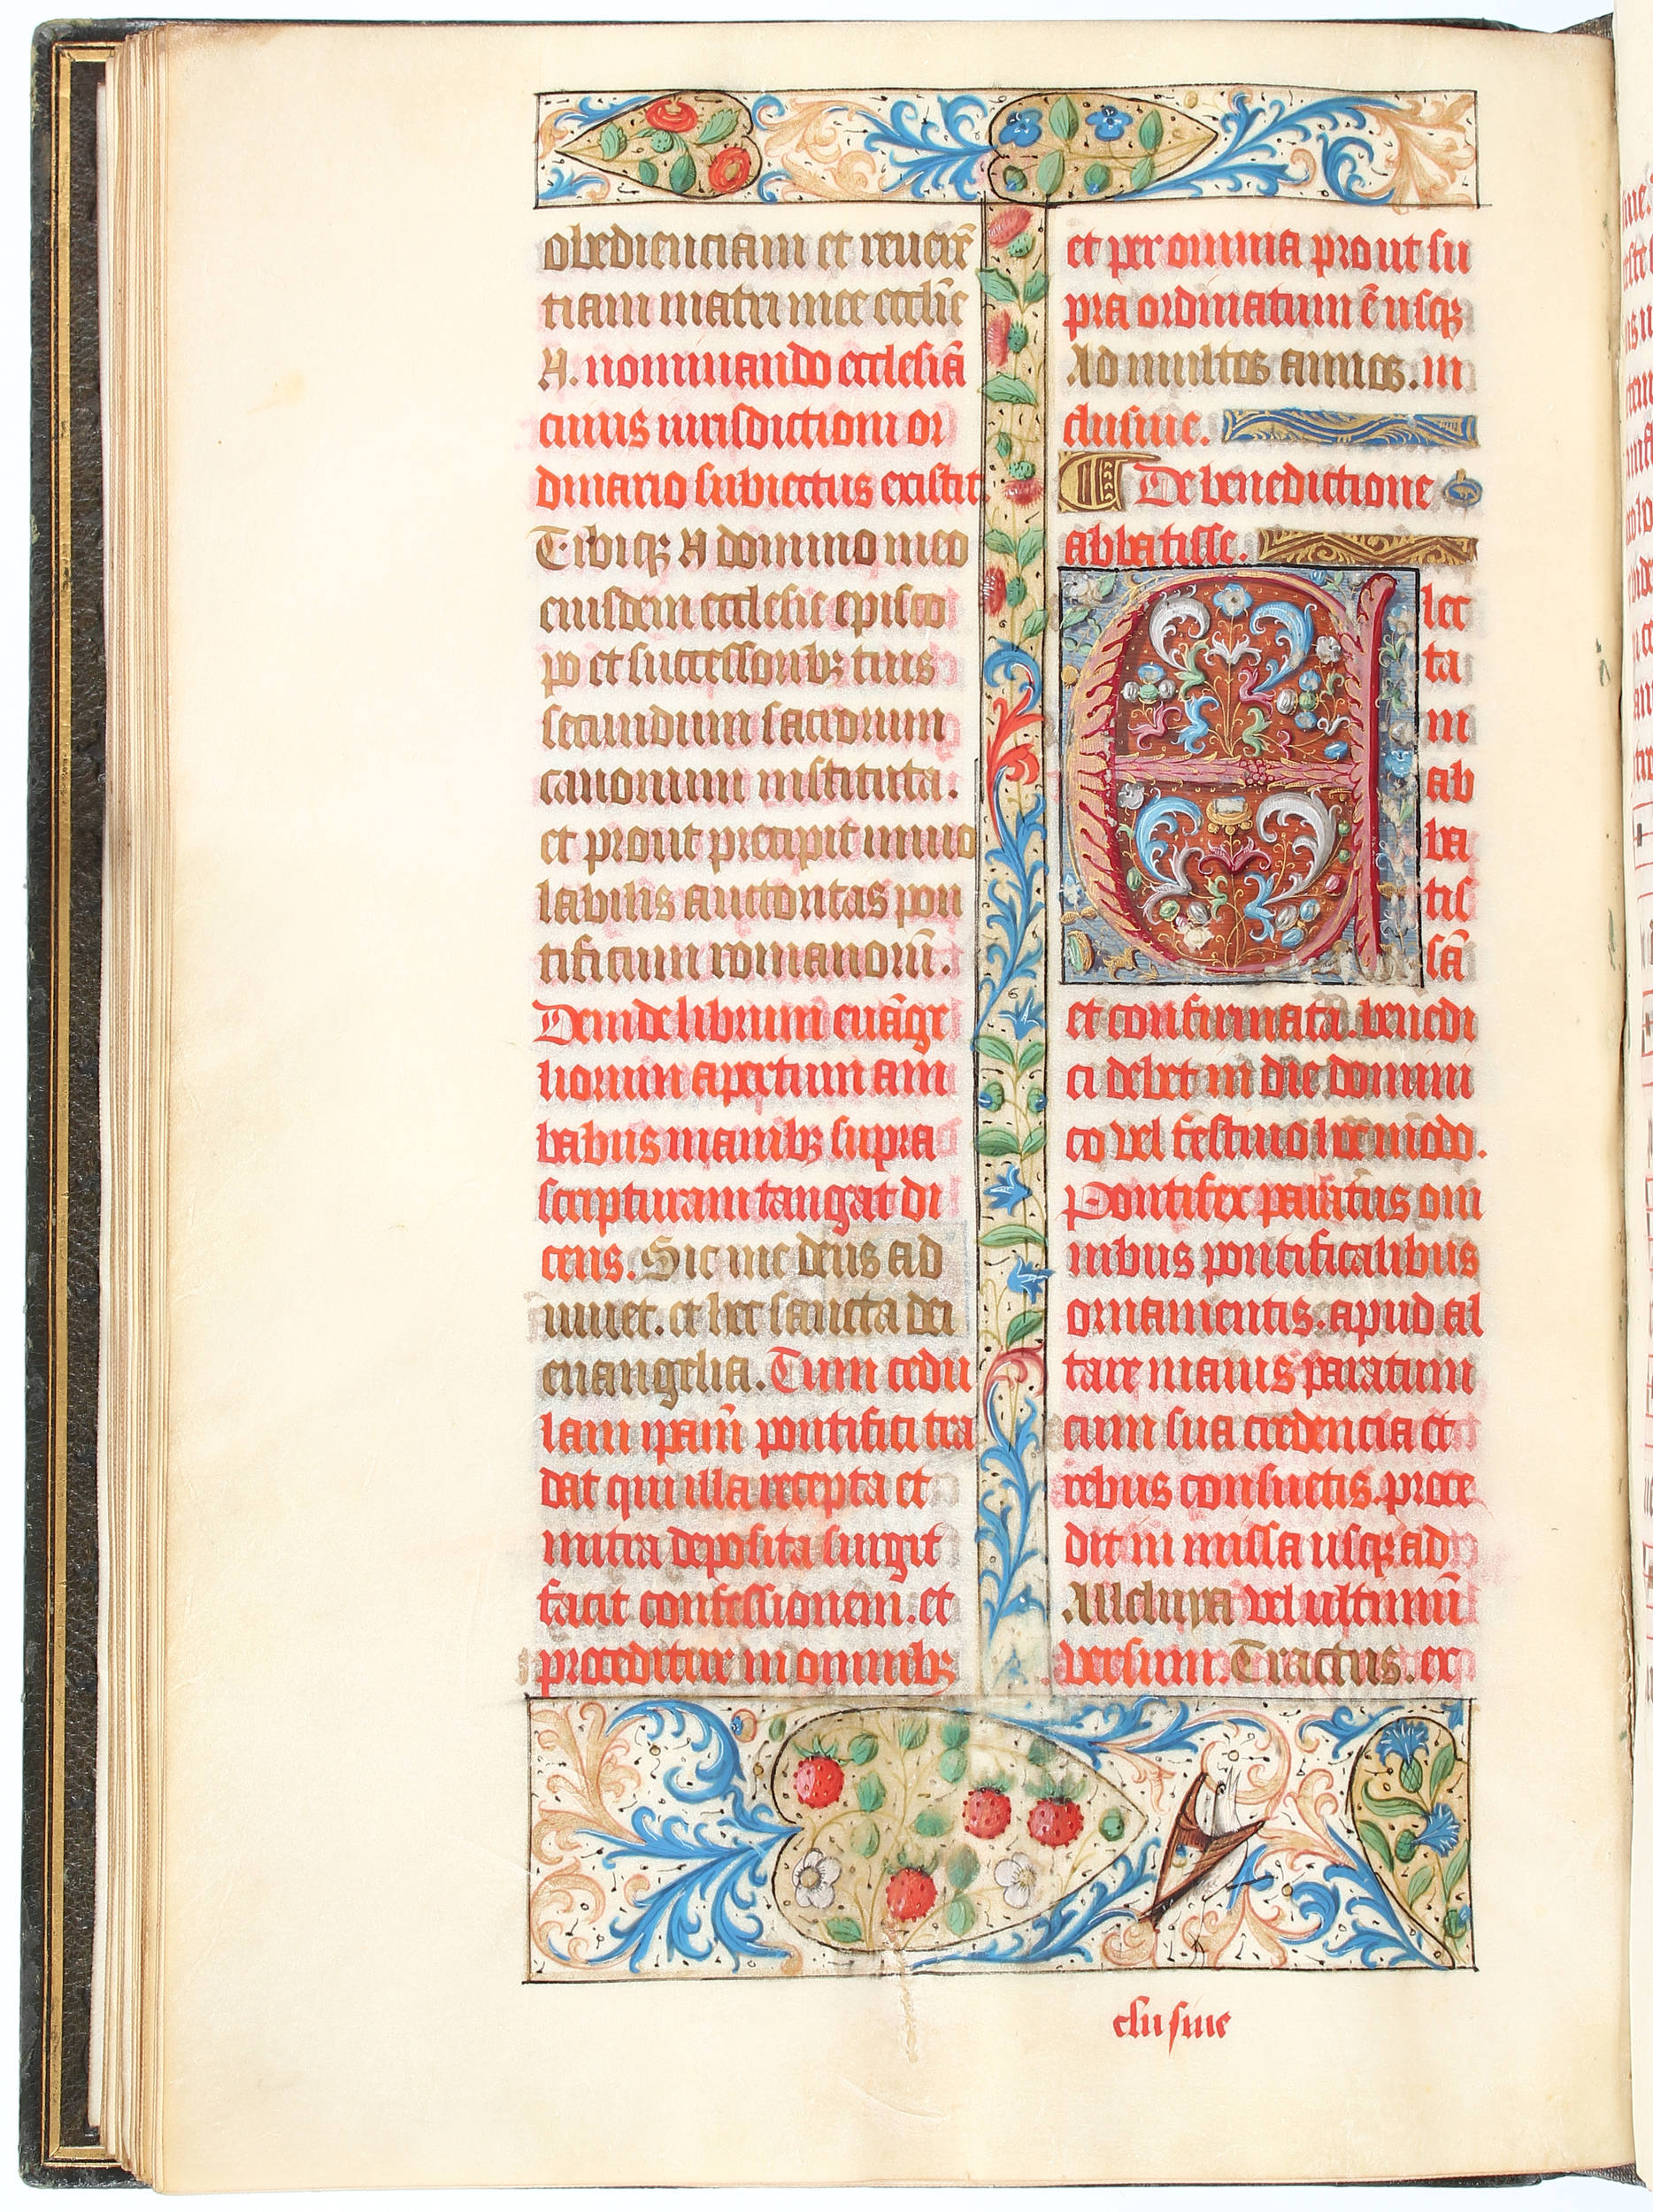 obedienciam et reuerē
tiam matri mee ecclīe
N. nominando ecclesiā
cuius iurisdictioni or
dinario subiectus existit.
Tibiqꝫ N domino meo
eiusdem ecclesie episco
po et successoribꝫ tuis
secundum sacrorum
canonum instituta.
et prout precipit inuio
labilis auctoritas pon
tificum romanorū.
Deinde librum euāge
liorum apertum am
babus manibꝫ supra
scripturam tangat di
cens. Sic me deus ad
iuuet. et hec sancta dei
euangelia. Tum cedu
lam ipam̄ pontifici tra
dat qui illa recepta et
mitra deposita surgit
facit confessionem. et
proceditur in omnibꝫ
et per omnia prout su
pra ordinatum ē usqꝫ
Ad multos annos. in
clusiue.
De benedictione
abbatisse.
Elec
ta
in
ab
ba
tis
sā
et confirmata. benedi
ci debet in die domini
co vel festiuo hoc modo.
Pontifex paratus om
nibus pontificalibus
ornamentis. apud al
tare manus paratum
cum sua credencia et
rebus consuetis. proce
dit in missa usqꝫ ad
Alleluya vel ultimū
versum. Tractus. ex
clusiue